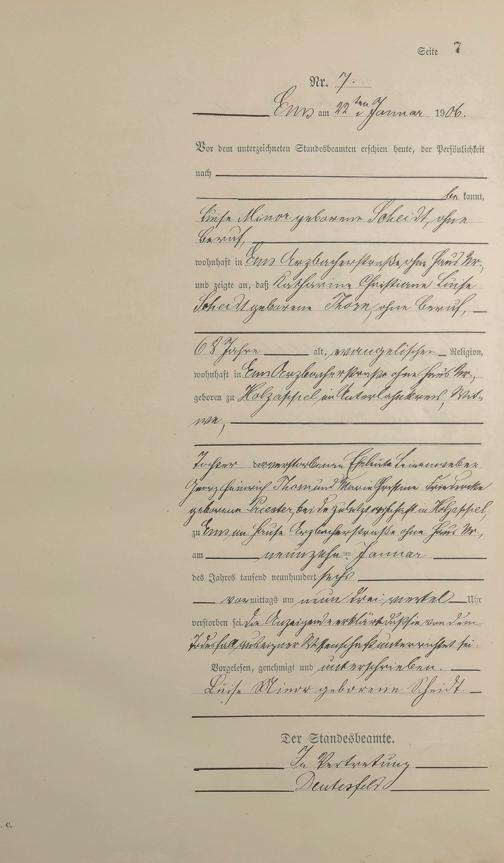 Seite 7
Nr. 7.
Ems am 22ten Januar 1906.
Vor dem unterzeichneten Standesbeamten erschien heute, der Persönlichkeit
nach
be kannt,
Luise Minor geborene Scheidt, ohne
Beruf,
wohnhaft in Ems Arzbacherstraße ohne Haus Nr.,
und zeigte an, daß Katharine Christiane Luise
Scheidt geborene Thorn, ohne Beruf,
68 Jahre alt, evangelischer Religion,
wohnhaft in Ems Arzbacherstraße ohne Haus Nr.,
geboren zu Holzappel im Unterlahnkreis, Wit-
we,
Tochter der verstorbenen Eheleute Leinenweber
Georg Heinrich Thorn und Marie Christine Friedericke
geborene Priester, beide zuletzt wohnhaft in Holzappel,
zu Ems im Hause Arzbacherstraße ohne Haus Nr.,
am neunzehn ten Januar
des Jahres tausend neunhundert sechs
vor mittags um neun drei viertel Uhr
verstorben sei. Die Anzeigende erklärt daß sie von dem
Todesfall aus eigner Wissenschaft unterrichtet sei.
Vorgelesen, genehmigt und unterschrieben.
Luise Minor geborene Scheidt
Der Standesbeamte.
In Vertretung